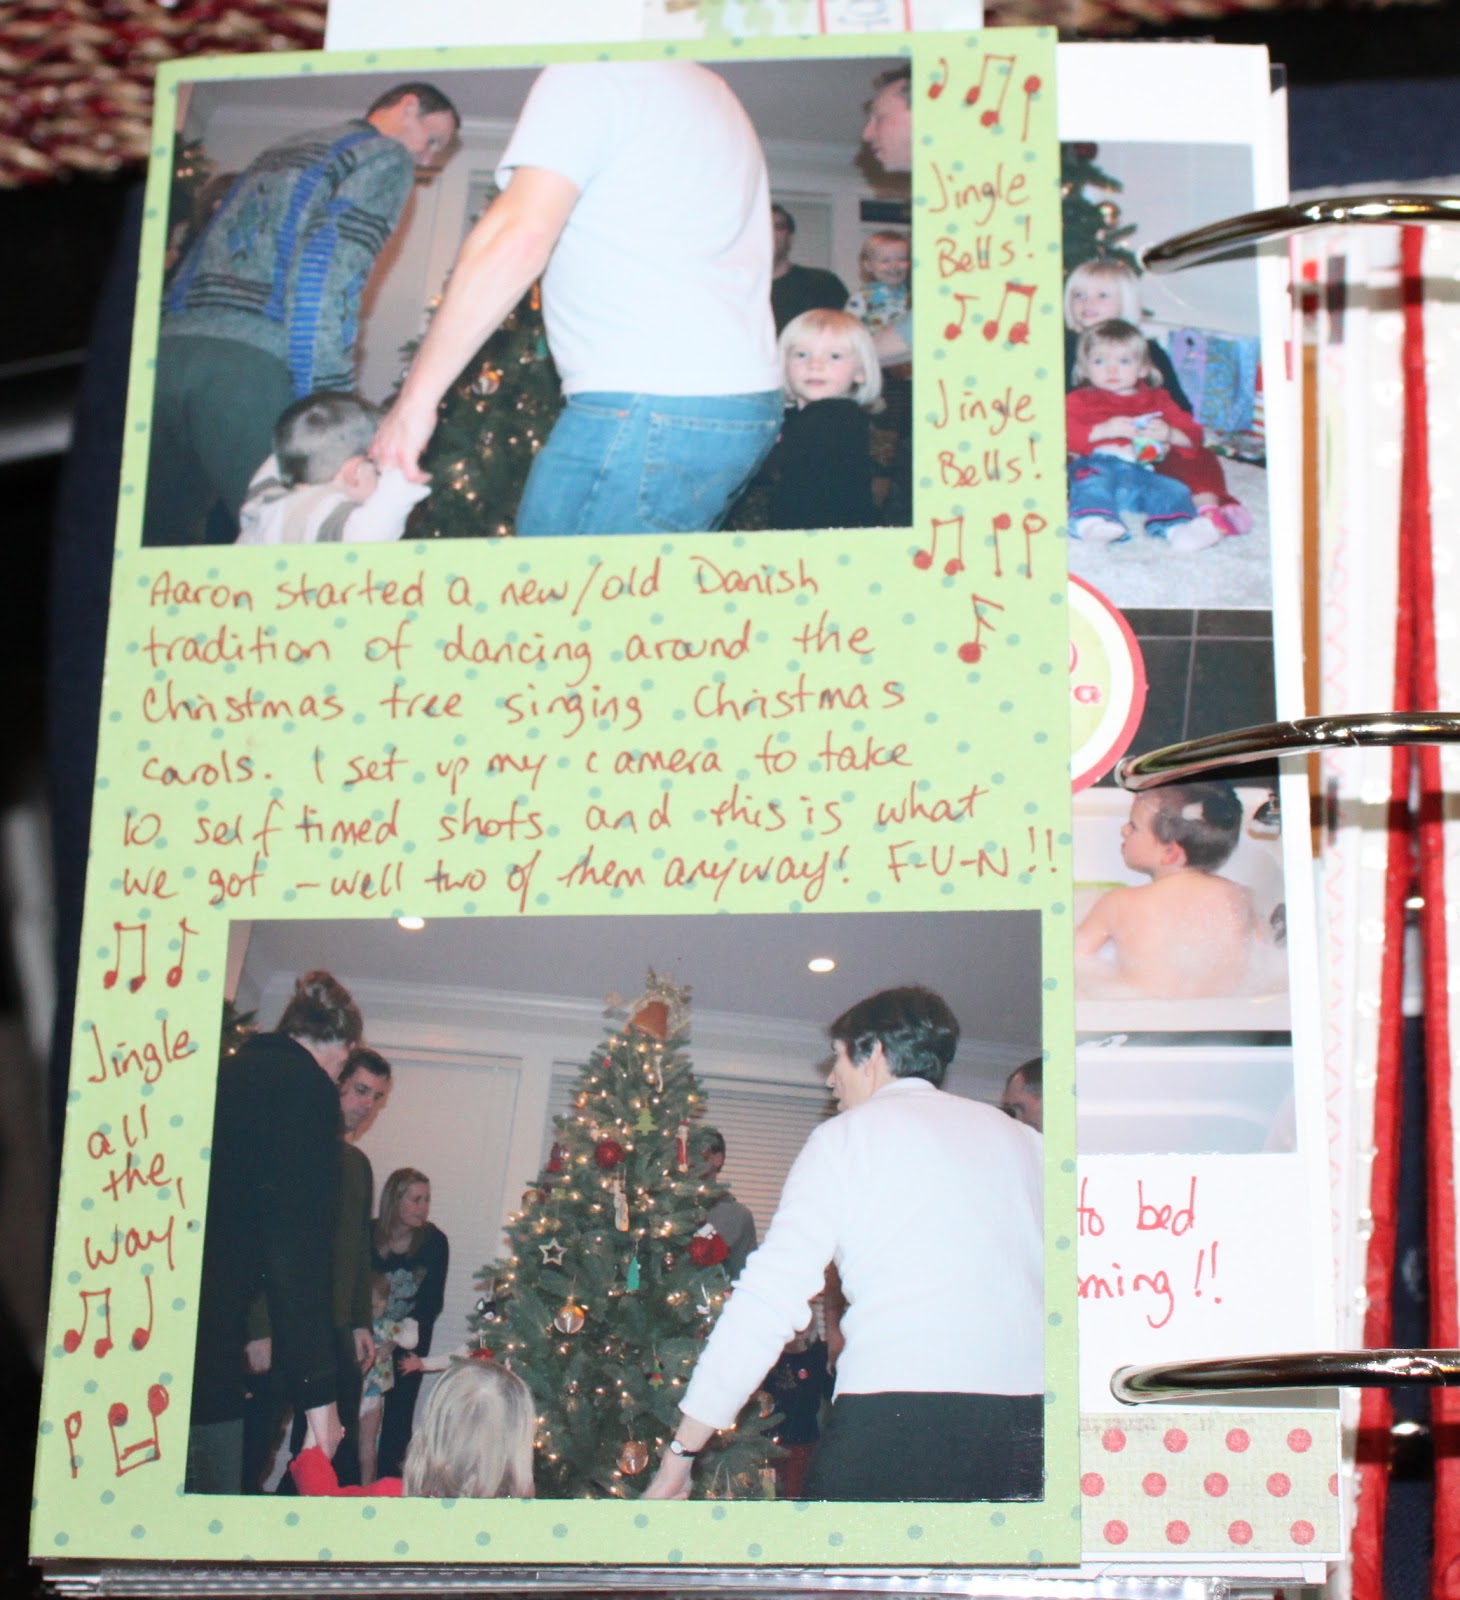 Jingle
Bells!
Jingle
Bells!
Aaron started a new/old Danish
tradition of dancing around the
Christmas tree singing Christmas
carols. I set up my camera to take
10 self timed shots and this is what
we got - well two of them anyway! F-U-N!!
Jingle
all
the
way!
to bed